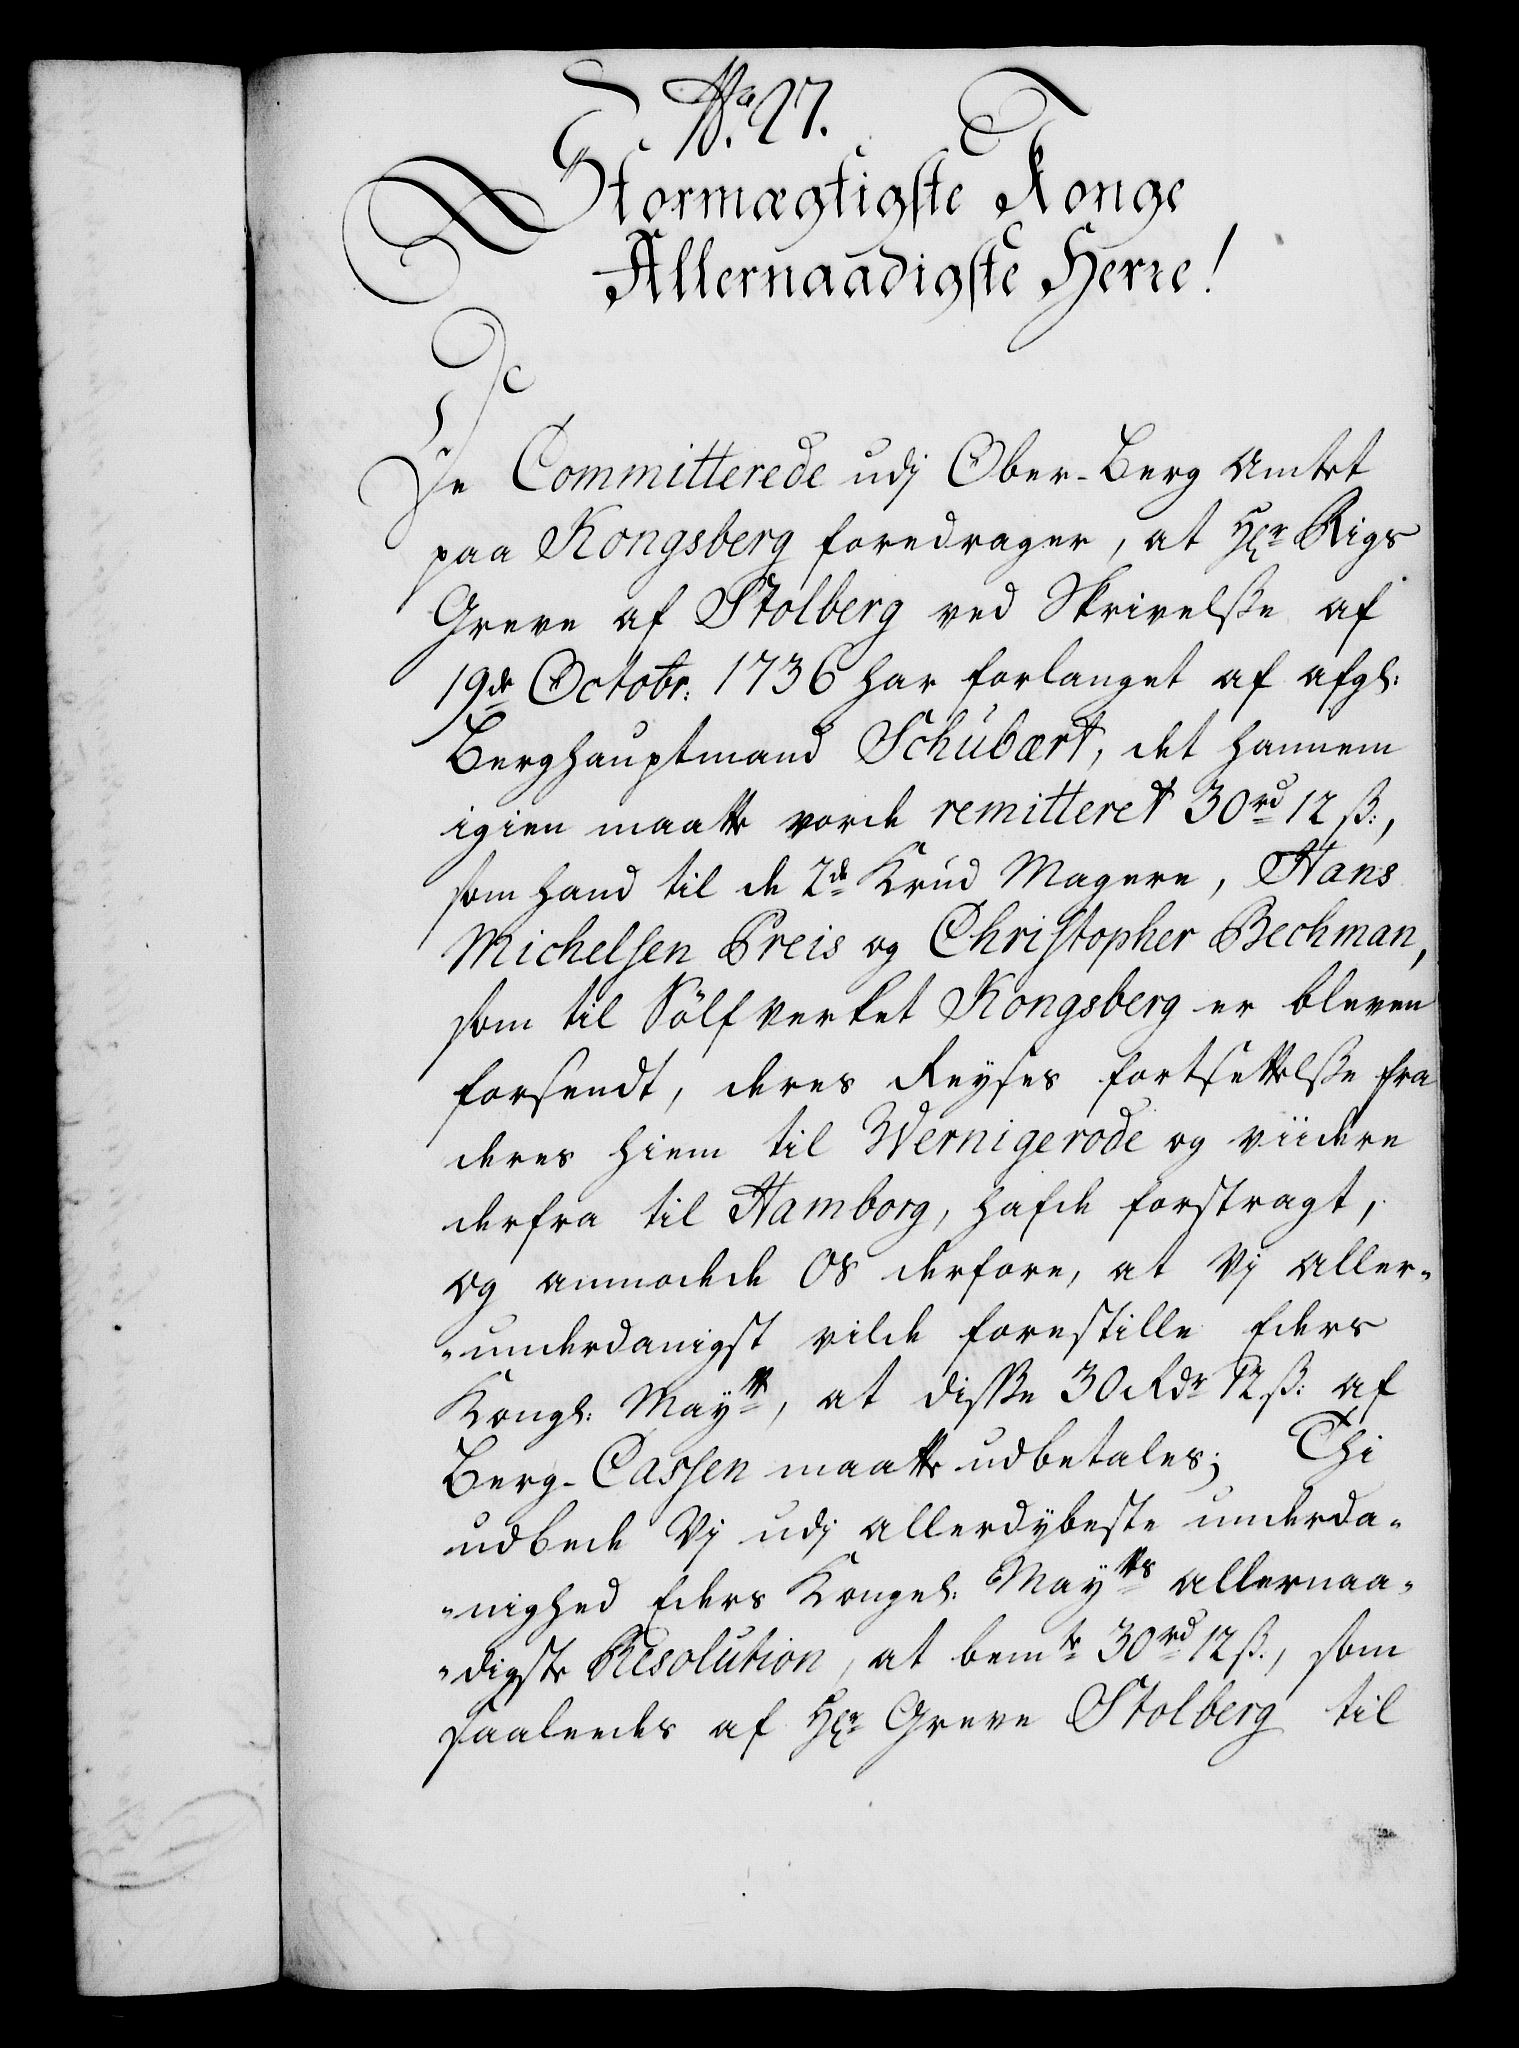 No. 27.
Stormægtigste Konge
Allernaadigste Herre!
De Committerede udj Ober-Berg Amtet
paa Kongsberg foredrager, at Hr. Rigs
Greve af Stolberg ved Skrivelße af
19de Octobr: 1736 har forlanget af afgl:
Berghauptmand Schubært, det hannem
igien maatte vorde remitteret 30 rd 12 ß:,
som hand til de 2de Krud Magere, Hans
Michelsen Preis og Christopher Bechman,
som til Sölfverket Kongsberg er bleven
forsendt, deres Reyses fortsettelße fra
deres hiem til Wernigerode og viidere
derfra til Hamborg, hafde forstragt,
og anmodede os derfore, at Vj aller-
-underdanigst vilde forestille Eders
Kongl: Maytt, at disse 30 Rdr 12 ß: af
Berg-Cassen maatte udbetales; Thi
udbede Vj udj allerdybeste underda-
-nighed Eders Kongel: Maytts allernaa-
-digste Resolution, at bemte 30 rd 12 ß., som
saaledes af Hr. Greve Stolberg til